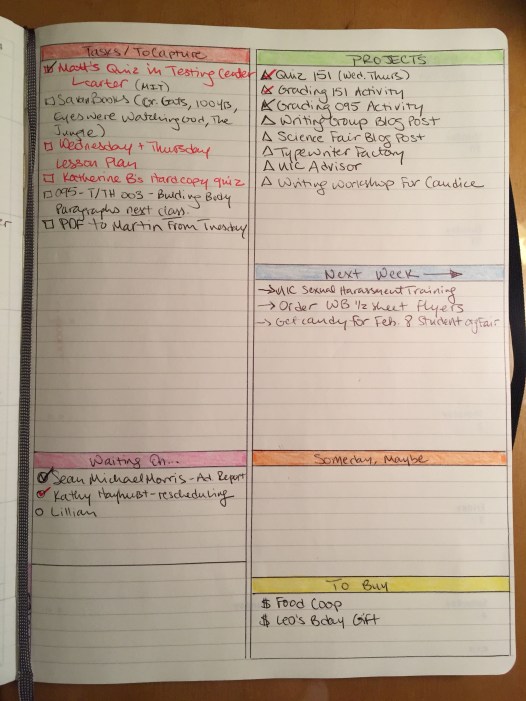 Tasks/ToCapture
Matt's Quiz in Testing Center
Carter (MIT)
Books (Gr. Gats, 100 yrs,
Eyes were Watching God, The
Jungle)
Wednesday + Thursday
Lesson Plan
Katherine B's Hardcopy quiz
095 - T/TH 003 - Building Body
Paragraphs next class
PDF to Martin From Tuesday
Waiting On...
Sean Michael Morris - Ad Report
Kathy - rescheduling
Lillian
PROJECTS
Quiz 151 (Wed, Thurs)
Grading 151 Activity
Grading 095 Activity
Writing Group Blog Post
Science Fair Blog Post
Typewriter Factory
UIC Advisor
Writing Workshop For Candice
Next Week →
→ UIC Sexual Harassment Training
→ Order WB ½ sheet flyers
→ Get candy for Feb. 8 Student Fair
Someday, Maybe
To Buy
$ Food Coop
$ Leo's Bday Gift